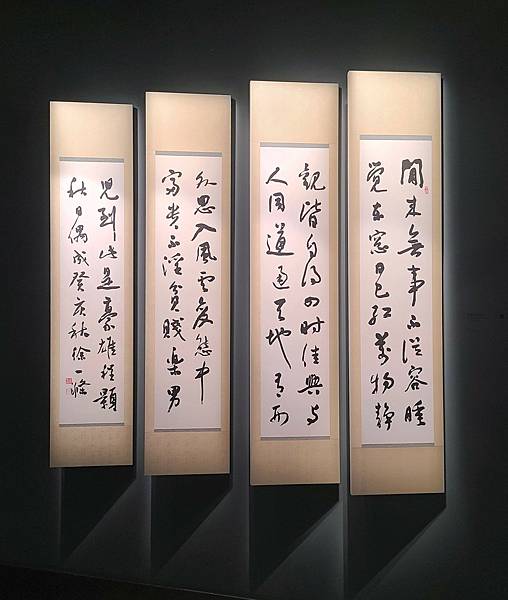 閒来無事不從容睡
覺東窓日已紅萬物静
觀皆自得四时佳興与
人同道通天地有形
外思入風雲变態中
富貴不淫貧賤樂男
児到此是豪雄程顥
秋日偶成癸亥秋徐一